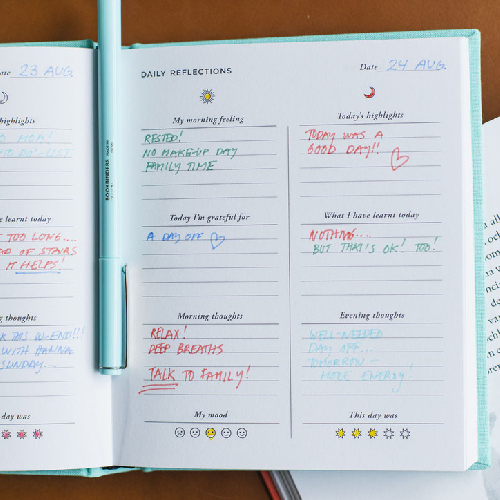 23 AUG
highlights
learnt today
TOO LONG....
OF STAIRS
IT HELPS!
thoughts
W-END!!!
WITH
SUNDAY...
day was
BOOKBINDERS
DAILY REFLECTIONS
Date 24 AUG
My morning feeling
RESTED!
NO MAKE-UP DAY
FAMILY TIME
Today I'm grateful for
A DAY OFF
Morning thoughts
RELAX!
DEEP BREATHS
TALK TO FAMILY!
My mood
Today's highlights
TODAY WAS A
GOOD DAY!!
What I have learnt today
NOTHING....
BUT THAT'S OK! TOO!
Evening thoughts
WELL-NEEDED
DAY OFF...
TOMORROW -
MORE ENERGY!
This day was